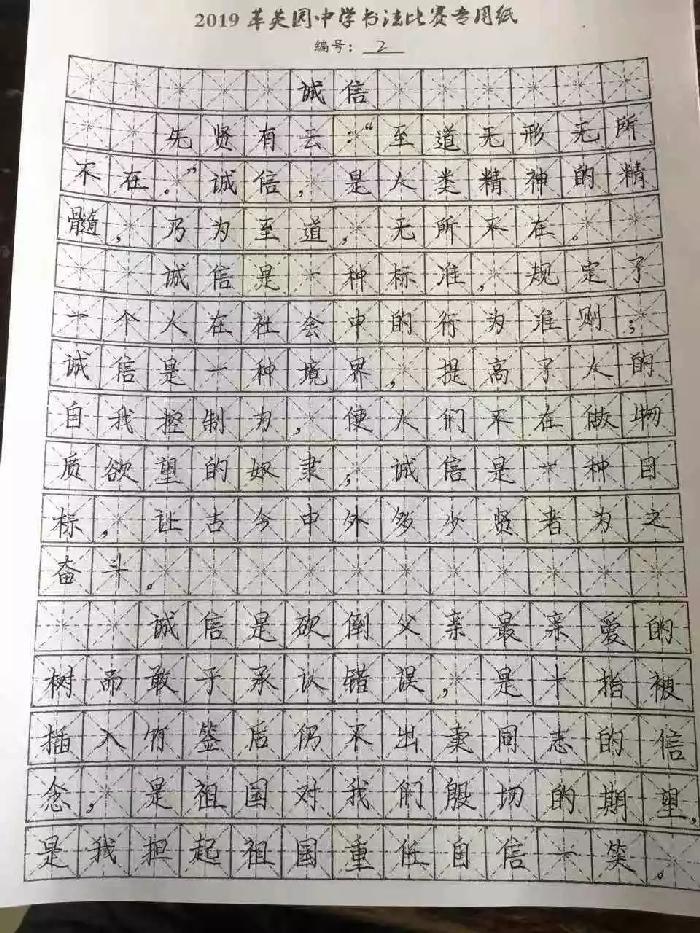 2019 苹英园中学书法比赛专用纸
编号： 2
诚信
先贤有云：“至道无形无所
不在。”诚信，是人类精神的精
髓，乃为至道，无所不在。
诚信是一种标准，规定了
一个人在社会中的行为准则；
诚信是一种境界，提高了人的
自我控制力，使人们不在做物
质欲望的奴隶；诚信是一种目
标，让古今中外多少贤者为之
奋斗。
诚信是砍倒父亲最亲爱的
树而敢于承认错误，是十指被
插入竹签后仍不出卖同志的信
念，是祖国对我们殷切的期望，
是我担起祖国重任自信一笑。